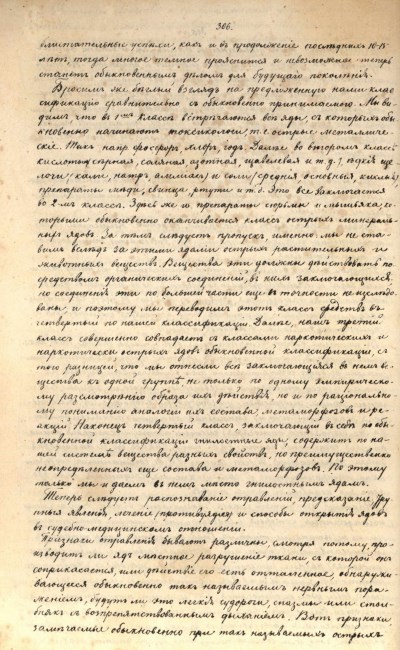 306.
влитательные успѣхи, какъ и въ продолженіе послѣднихъ 10-15
лѣтъ, тогда многое темное прояснится и невозможное теперь
станетъ обыкновеннымъ дѣломъ для будущаго поколѣнія.
Бросимъ же бѣглый взглядъ на предложенную нами клас
сификацію сравнительно съ обыкновенно принимаемою. Мы ви
димъ что въ 1мъ классѣ встрѣчаются всѣ яды, съ которыхъ обы
кновенно начинаютъ токсикологи, т. е. острые металличе
скіе. Такъ напр фосфоръ, хлоръ, іодъ. Далѣе во второмъ классѣ
кислоты (сѣрная, соляная азотная, щавелевая и т. д.), ѣдкія ще
лочи (кали, натръ, амміакъ) и соли (среднія, основныя, кислыя),
препараты мѣди, свинца, ртути и т. д. Это все заключается
во 2мъ классѣ. Здѣсь же и препараты сюрьмы и мышьяка, ко
торыми обыкновенно оканчивается классъ острыхъ минераль
ныхъ ядовъ. За тѣмъ слѣдуетъ пропускъ, именно: мы не ста
вимъ вслѣдъ за этими ядами острыхъ растительныхъ и
животныхъ веществъ. Вещества эти должны дѣйствовать по
средствомъ органическихъ соединеній, въ нихъ заключающихся,
но соединенія эти по большей части еще въ точности не изслѣдо
ваны, и поэтому мы переводимъ этотъ классъ средствъ въ
четвертый по нашей классификаціи. Далѣе, нашъ третій
классъ совершенно совпадаетъ съ классами наркотическихъ и
наркотически острыхъ ядовъ обыкновенной классификаціи, съ
тою разницею, что мы отнесли всѣ заключающіяся въ немъ ве
щества къ одной группѣ не только по одному эмпирическо
му разсмотрѣнію образа ихъ дѣйствія, но и по раціональному
пониманію аналогіи ихъ состава, метаморфозовъ и ре
акцій. Наконецъ четвертый классъ, заключающій въ себѣ по обы
кновенной классификаціи гнилостные яды, содержитъ по на
шей системѣ вещества разныхъ свойствъ, но преимущественно
неопредѣленныхъ еще состава и метаморфозовъ. По этому
только мы и даемъ въ немъ мѣсто гнилостнымъ ядамъ.
Теперь слѣдуетъ распознаваніе отравленій, предсказаніе, тру
пныя явленія, леченіе (противуядіе) и способы открытія ядовъ
въ судебно-медицинскомъ отношеніи.
Признаки отравленія бываютъ различны, смотря потому, про
изводитъ ли ядъ мѣстное разрушеніе ткани, съ которой онъ
соприкасается, или дѣйствіе его есть отдаленное, обнаружи
вающееся обыкновенно такъ называемымъ нервнымъ пора
женіемъ, будутъ ли это легкія судороги, спазмы или столб
някъ съ воспрепятствованнымъ дыханіемъ. Вотъ признаки
замѣчаемые обыкновенно при такъ называемыхъ острыхъ